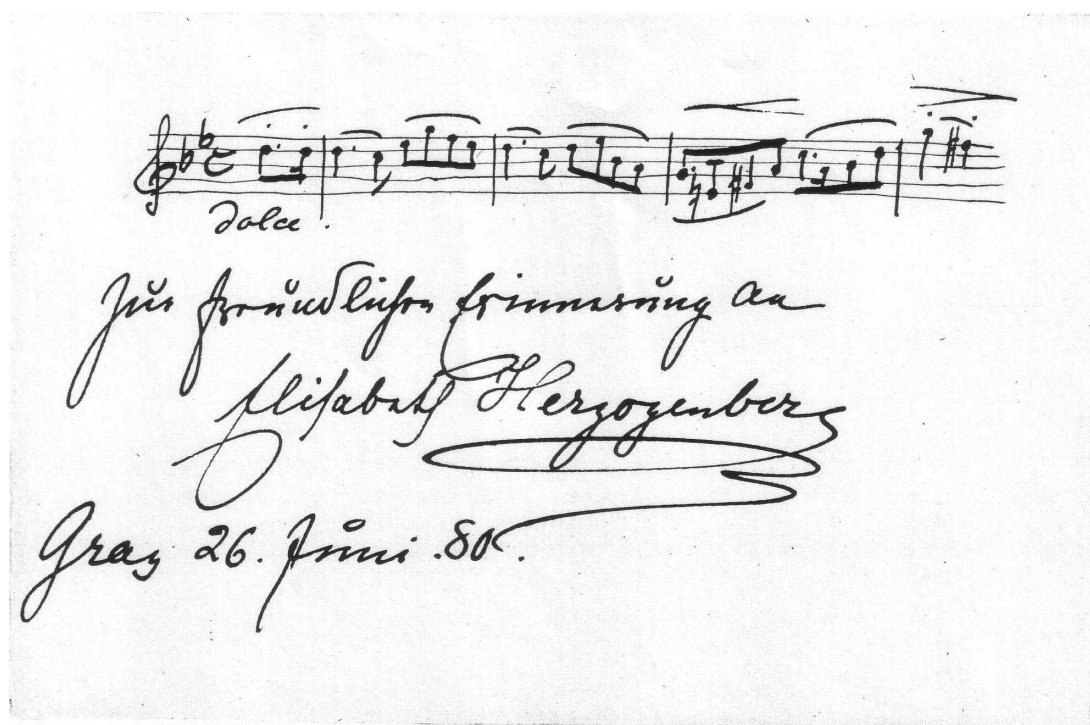 dolce.
Zur freundlichen Erinnerung an
Elisabeth Herzogenberg
Graz 26. Juni .80.